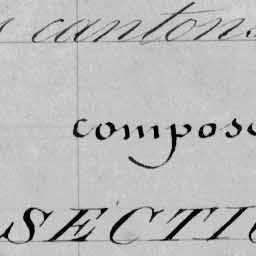 s cantons
compose
SECTIO